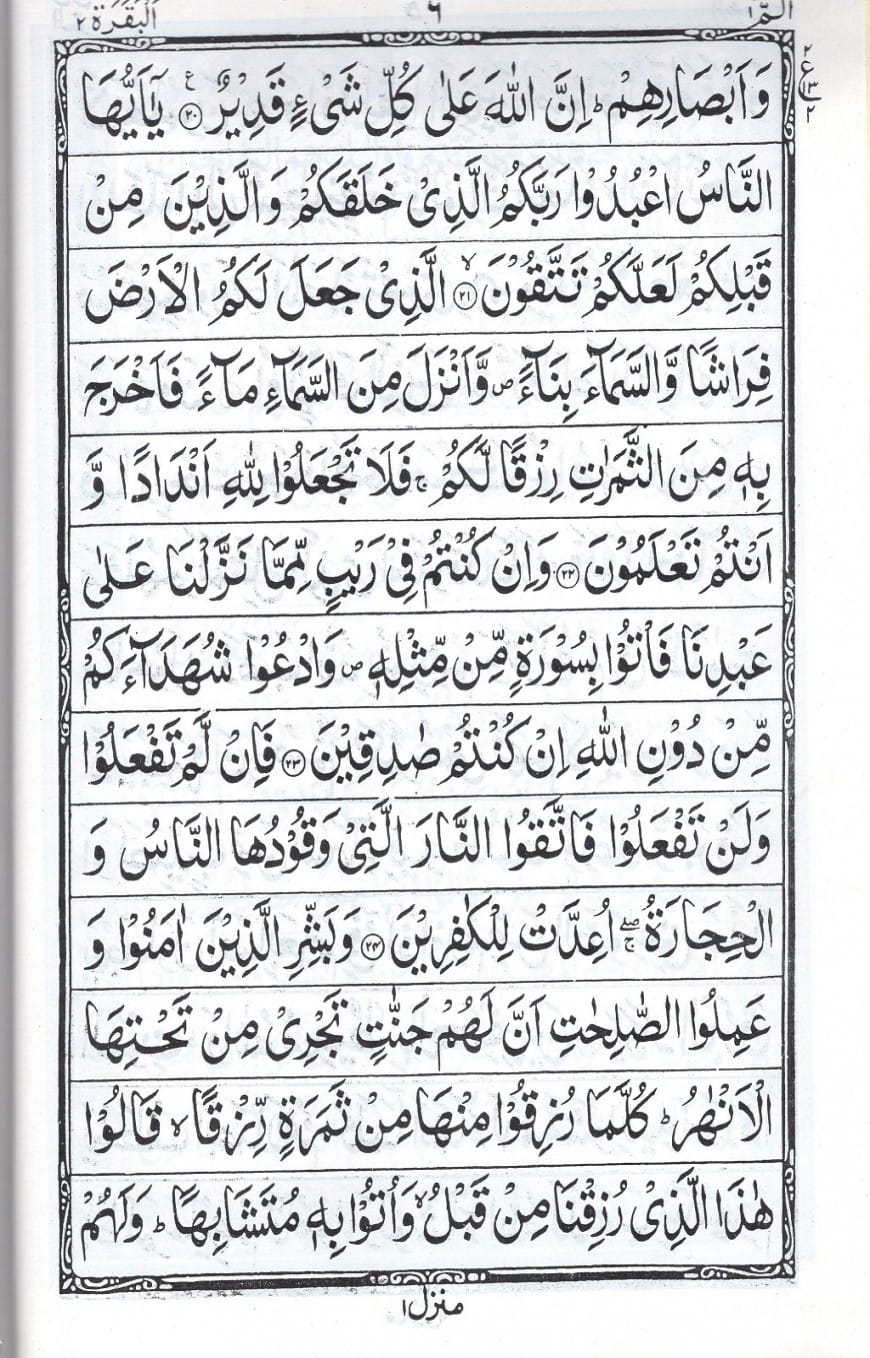 الٓمّٓ ۱ ٦ اَلْبَقَرَة ۲
وَاَبْصَارِهِمْ ؕ اِنَّ اللّٰهَ عَلٰى كُلِّ شَىْءٍ قَدِيْرٌ ۟ۧ ۲۰ يٰۤاَيُّهَا
ع ۲ ۱۳ ۲
النَّاسُ اعْبُدُوْا رَبَّكُمُ الَّذِىْ خَلَقَكُمْ وَالَّذِيْنَ مِنْ
قَبْلِكُمْ لَعَلَّكُمْ تَتَّقُوْنَ ۙ ۲۱ الَّذِىْ جَعَلَ لَكُمُ الْاَرْضَ
فِرَاشًا وَّالسَّمَآءَ بِنَآءً ص وَّاَنْزَلَ مِنَ السَّمَآءِ مَآءً فَاَخْرَجَ
بِهٖ مِنَ الثَّمَرٰتِ رِزْقًا لَّكُمْ ۚ فَلَا تَجْعَلُوْا لِلّٰهِ اَنْدَادًا وَّ
اَنْتُمْ تَعْلَمُوْنَ ۲۲ وَاِنْ كُنْتُمْ فِىْ رَيْبٍ مِّمَّا نَزَّلْنَا عَلٰى
عَبْدِنَا فَاْتُوْا بِسُوْرَةٍ مِّنْ مِّثْلِهٖ ص وَادْعُوْا شُهَدَآءَكُمْ
مِّنْ دُوْنِ اللّٰهِ اِنْ كُنْتُمْ صٰدِقِيْنَ ۲۳ فَاِنْ لَّمْ تَفْعَلُوْا
وَلَنْ تَفْعَلُوْا فَاتَّقُوا النَّارَ الَّتِىْ وَقُوْدُهَا النَّاسُ وَ
الْحِجَارَةُ ۖۚ اُعِدَّتْ لِلْكٰفِرِيْنَ ۲۴ وَبَشِّرِ الَّذِيْنَ اٰمَنُوْا وَ
عَمِلُوا الصّٰلِحٰتِ اَنَّ لَهُمْ جَنّٰتٍ تَجْرِىْ مِنْ تَحْتِهَا
الْاَنْهٰرُ ؕ كُلَّمَا رُزِقُوْا مِنْهَا مِنْ ثَمَرَةٍ رِّزْقًا ۙ قَالُوْا
هٰذَا الَّذِىْ رُزِقْنَا مِنْ قَبْلُ ۙ وَاُتُوْا بِهٖ مُتَشَابِهًا ؕ وَلَهُمْ
منزل ۱